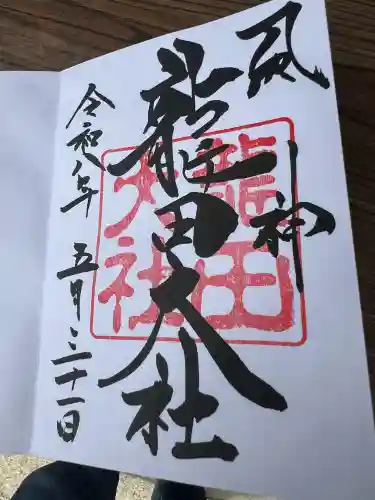 風神
龍田大社
龍田
大社
令和八年五月三十一日